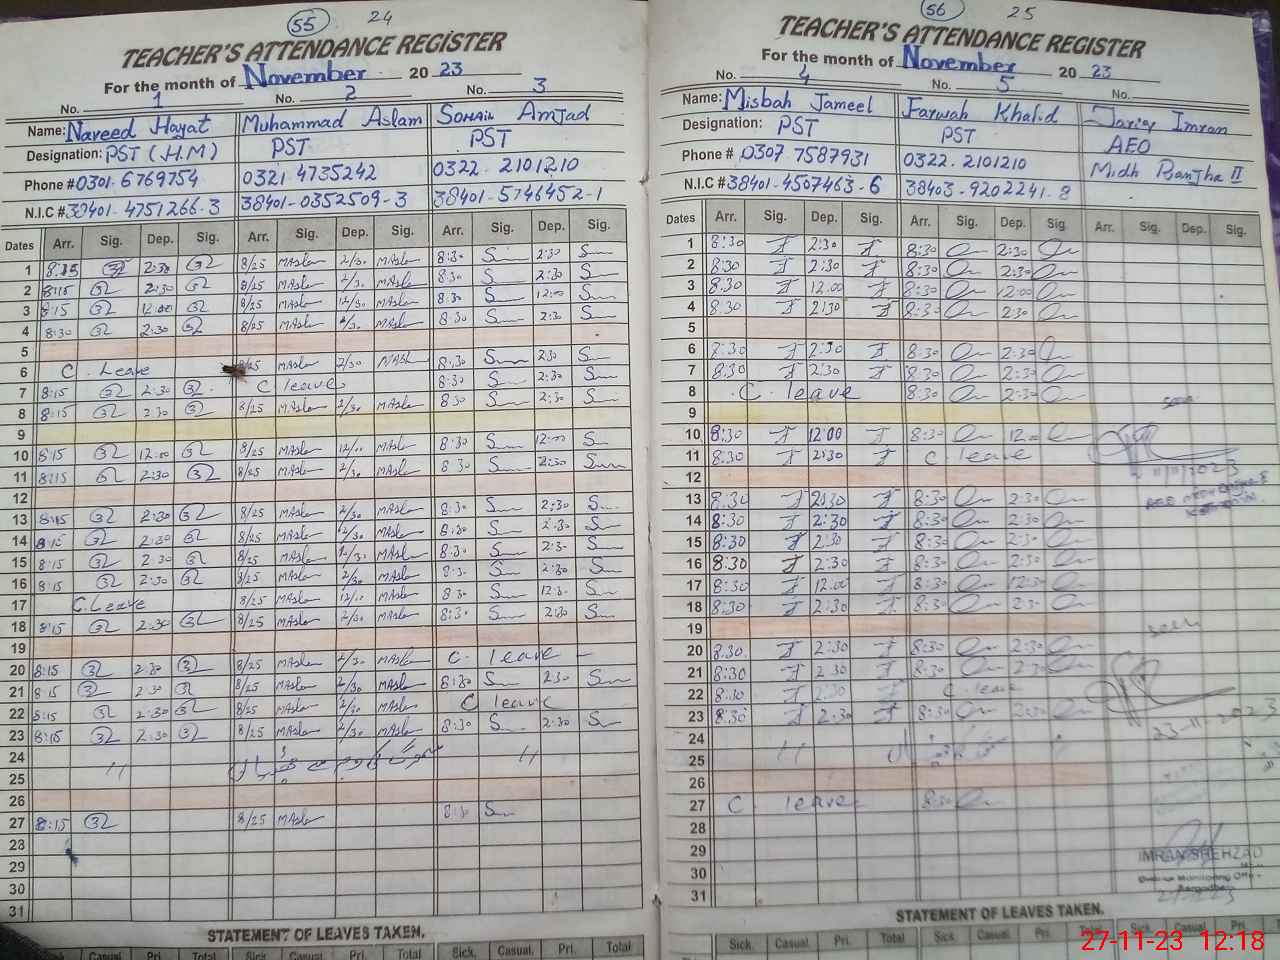 55 24
TEACHER'S ATTENDANCE REGISTER
For the month of November 20 23
No. 1 No. 2 No. 3
Name: Naveed Hayat Muhammad Aslam Sohail Amjad
Designation: PST (.H.M) PST PST
Phone # 0301.6769754 0321 4735242 0322.2101210
N.I.C # 38401-4751266-3 38401-0352509-3 38401-5746452-1
Dates Arr. Sig. Dep. Sig. Arr. Sig. Dep. Sig. Arr. Sig. Dep. Sig.
1 8:15 2:30 8/25 MAslam 2/30 MAslam 8:30 2:30
2 8:15 2:30 8/25 MAslam 2/30 MAslam 8:30 2:30
3 8:15 12:00 8/25 MAslam 12/30 MAslam 8:30 12:00
4 8:30 2:30 8/25 MAslam 2/30 MAslam 8:30 2:30
5
6 C. Leave 8/25 MAslam 2/30 MAslam 8:30 2:30
7 8:15 2:30 C leave 8:30 2:30
8 8:15 2:30 8/25 MAslam 2/30 MAslam 8:30 2:30
9
10 8:15 12:00 8/25 MAslam 12/00 MAslam 8:30 12:00
11 8:15 2:30 8/25 MAslam 2/30 MAslam 8:30 2:30
12
13 8:15 2:30 8/25 MAslam 2/30 MAslam 8:30 2:30
14 8:15 2:30 8/25 MAslam 2/30 MAslam 8:30 2:30
15 8:15 2:30 8/25 MAslam 12/30 MAslam 8:30 2:30
16 8:15 2:30 8/25 MAslam 2/30 MAslam 8:30 2:30
17 C. Leave 8/25 MAslam 12/00 MAslam 8:30 12:30
18 8:15 2:30 8/25 MAslam 2/30 MAslam 8:30 2:30
19
20 8:15 2:30 8/25 MAslam 2/30 MAslam C. leave
21 8:15 2:30 8/25 MAslam 2/30 MAslam 8:30 2:30
22 8:15 2:30 8/25 MAslam 2/30 MAslam C leave
23 8:15 2:30 8/25 MAslam 2/30 MAslam 8:30 2:30
24
25 11 11
26
27 8:15 8/25 MAslam 8:30
23
29
30
31
STATEMENT OF LEAVES TAKEN.
Casual Pri. Total Sick. Casual. Pri. Total Sick. Casual. Pri. Total
56 25
TEACHER'S ATTENDANCE REGISTER
For the month of November 20 23
No. 4 No. 5 No.
Name: Misbah Jameel Farwah Khalid Tariq Imran
Designation: PST PST AEO
Phone # 0307.7587931 0322.2101210 Midh Ranjha II
N.I.C # 38401-4507463-6 38403-9202241-8
Dates Arr. Sig. Dep. Sig. Arr. Sig. Dep. Sig Arr. Sig. Dep. Sig.
1 8:30 2:30 8:30 2:30
2 8:30 2:30 8:30 2:30
3 8:30 12:00 8:30 12:00
4 8:30 2:30 8:30 2:30
5
6 8:30 2:30 8:30 2:30
7 8:30 2:30 8:30 2:30
8 C. leave 8:30 2:30
9 seen
10 8:30 12:00 8:30 12
11 8:30 2:30 C leave 11/11/2023
12
13 8:30 2:30 8:30 2:30
14 8:30 2:30 8:30 2:30
15 8:30 2:30 8:30 2:30
16 8:30 2:30 8:30 2:30
17 8:30 12:00 8:30 12:30
18 8:30 2:30 8:30 2:30
19 seen
20 8:30 2:30 8:30 2:30
21 8:30 2:30 8:30 2:30
22 8:30 2:30 C. leave
23 8:30 2:30 8:30 2:30 23-11-2023
24
25 11
26
27 C. leave 8:30
28
29 IMRAN SHEHZAD
30
31
STATEMENT OF LEAVES TAKEN.
Sick. Casual. Pri. Total Sick. Casual. Pri. Total Sick. Casual. Pri.
27-11-23 12:18